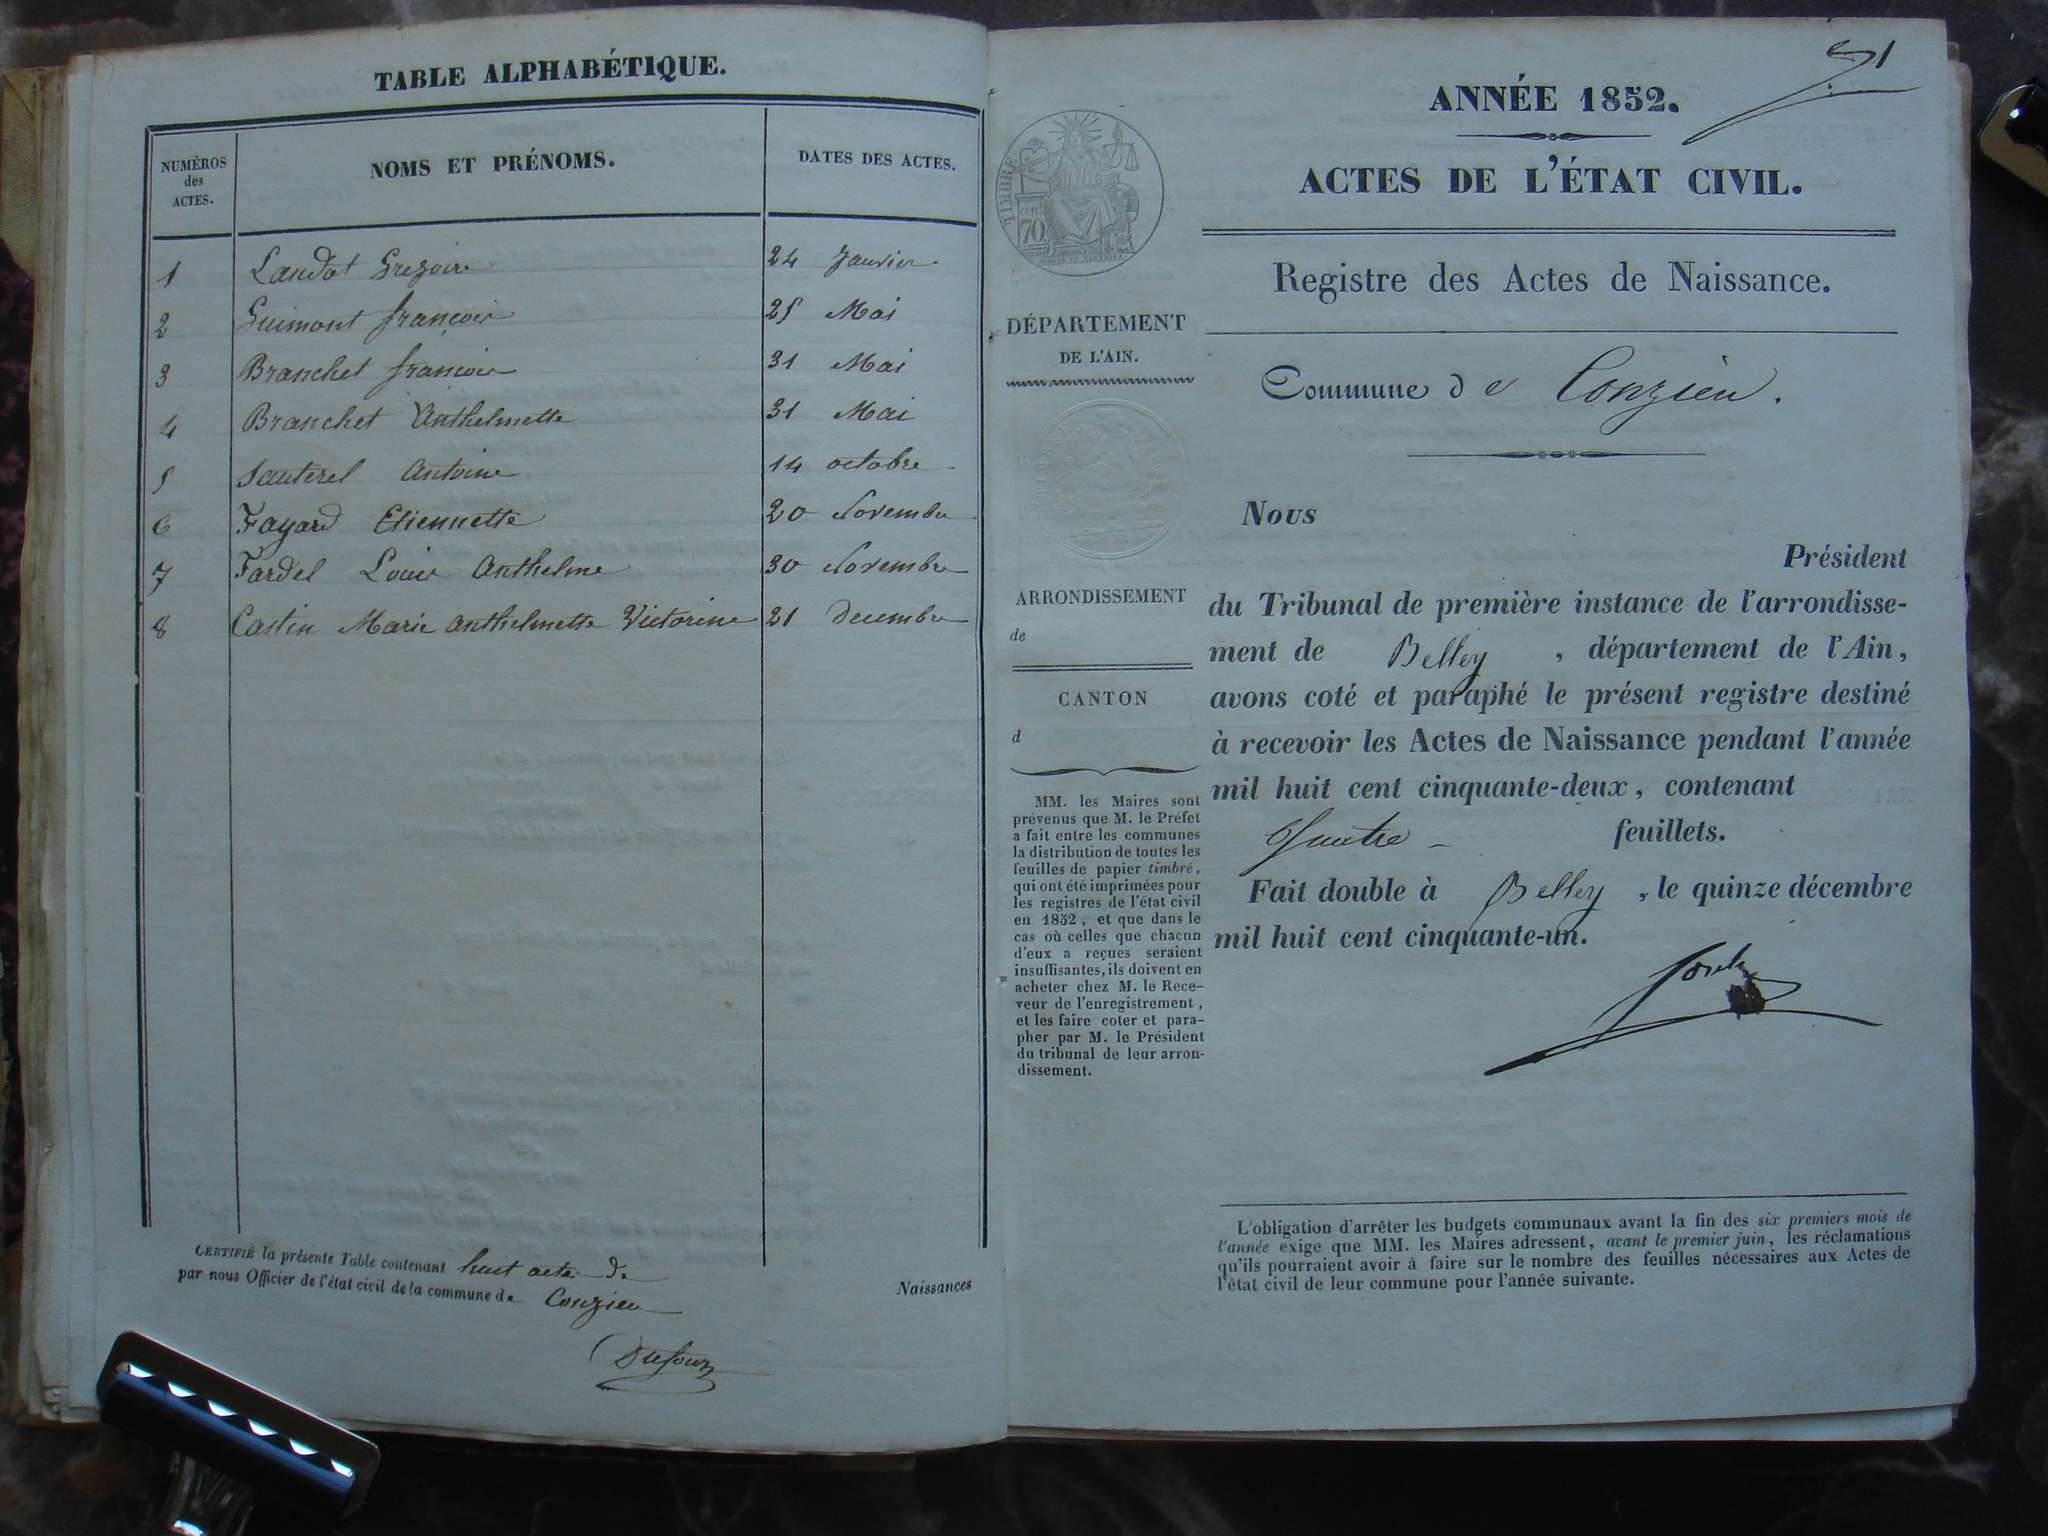 TABLE ALPHABÉTIQUE.
NUMÉROS
des
ACTES.
NOMS ET PRÉNOMS.
DATES DES ACTES.
1 Landot Gregoire 24 Janvier
2 Guimont françois 25 Mai
3 Branchet françois 31 Mai
4 Branchet Anthelmette 31 Mai
5 Sauterel Antoine 14 octobre
6 Fayard Etiennette 20 Novembre
7 Fardel Louis Anthelme 30 Novembre
8 Castin Marie Anthelmette Victorine 21 Decembre
CERTIFIÉ la présente Table contenant huit acte de
Naissances
par nous Officier de l'état civil de la commune de Conzieu
Dufour
1
TIMBRE
70
DÉPARTEMENT
DE L'AIN.
ARRONDISSEMENT
de
CANTON
d
MM. les Maires sont
prévenus que M. le Préfet
a fait entre les communes
la distribution de toutes les
feuilles de papier timbré,
qui ont été imprimées pour
les registres de l'état civil
en 1852, et que dans le
cas où celles que chacun
d'eux a reçues seraient
insuffisantes, ils doivent en
acheter chez M. le Rece-
veur de l'enregistrement,
et les faire coter et para-
pher par M. le Président
du tribunal de leur arron-
dissement.
ANNÉE 1852.
ACTES DE L'ÉTAT CIVIL.
Registre des Actes de Naissance.
Commune de Conzieu.
Nous
Président
du Tribunal de première instance de l'arrondisse-
ment de Belley, département de l'Ain,
avons coté et paraphé le présent registre destiné
à recevoir les Actes de Naissance pendant l'année
mil huit cent cinquante-deux, contenant
Quatre feuillets.
Fait double à Belley, le quinze décembre
mil huit cent cinquante-un.
L'obligation d'arrêter les budgets communaux avant la fin des six premiers mois de
l'année exige que MM. les Maires adressent, avant le premier juin, les réclamations
qu'ils pourraient avoir à faire sur le nombre des feuilles nécessaires aux Actes de
l'état civil de leur commune pour l'année suivante.